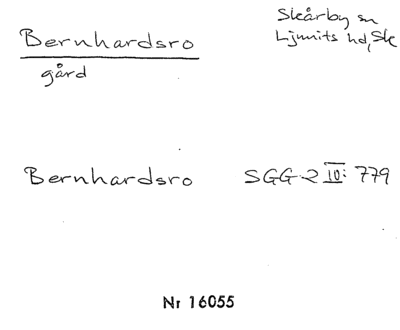 Bernhardsro
gård
Skårby sn
Ljunits hd, Sk
Bernhardsro SGG 2 III: 779
Nr 16055